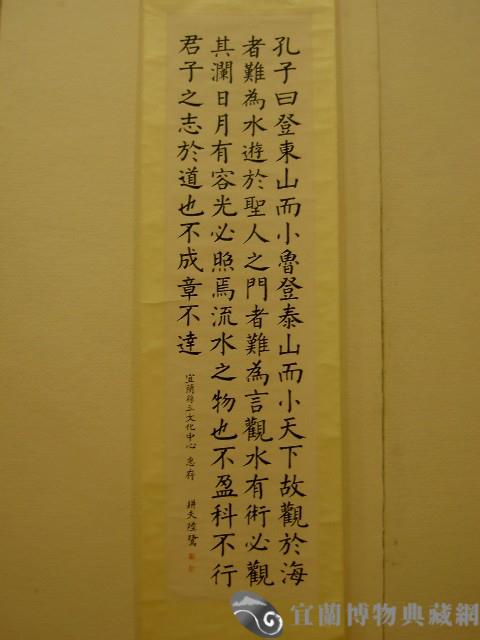 孔子曰登東山而小魯登泰山而小天下故觀於海
者難為水遊於聖人之門者難為言觀水有術必觀
其瀾日月有容光必照焉流水之物也不盈科不行
君子之志於道也不成章不達
宜蘭縣立文化中心 惠存
耕夫陸鷺
宜蘭博物典藏網